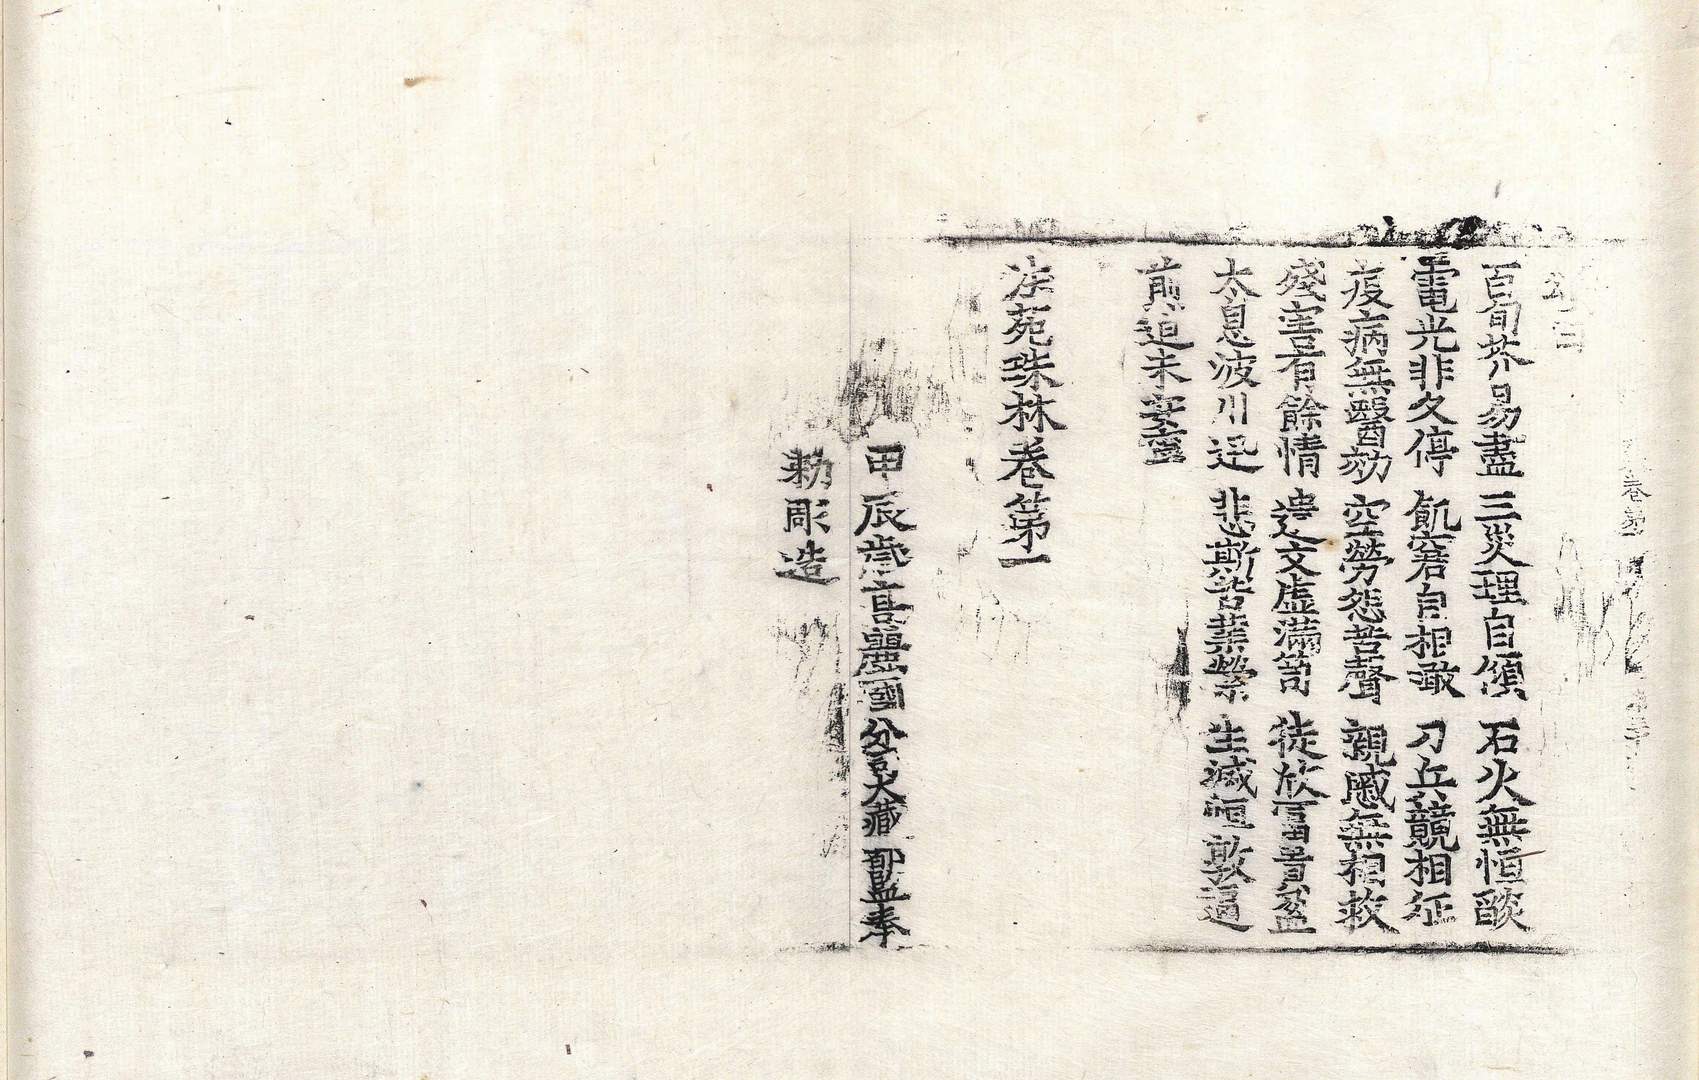 頌曰
百旬芥易盡 三災理自傾 石火無恒燄
電光非久停 飢窘自相噉 刀兵競相征
疫病無醫効 空勞怨苦聲 親戚無相救
殘害有餘情 遺文虛滿笥 徒欣富貴盈
太息波川迅 悲斯苦業縈 生滅恒敦逼
煎迫未安寧
法苑珠林卷第一
甲辰歲高麗國分司大藏都監奉
勅彫造